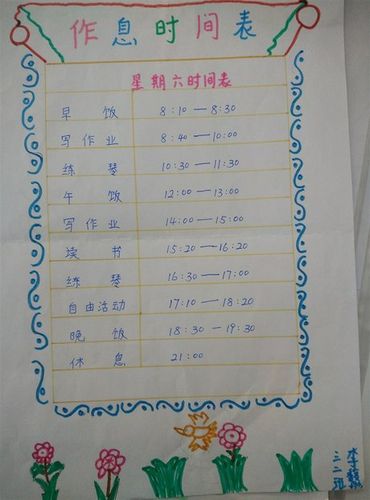 作息时间表
星期六时间表
早饭 8:10—8:30
写作业 8:40—10:00
练琴 10:30—11:30
午饭 12:00—13:00
写作业 14:00—15:00
读书 15:20—16:20
练琴 16:30—17:00
自由活动 17:10—18:20
晚饭 18:30—19:30
休息 21:00
三二班
李